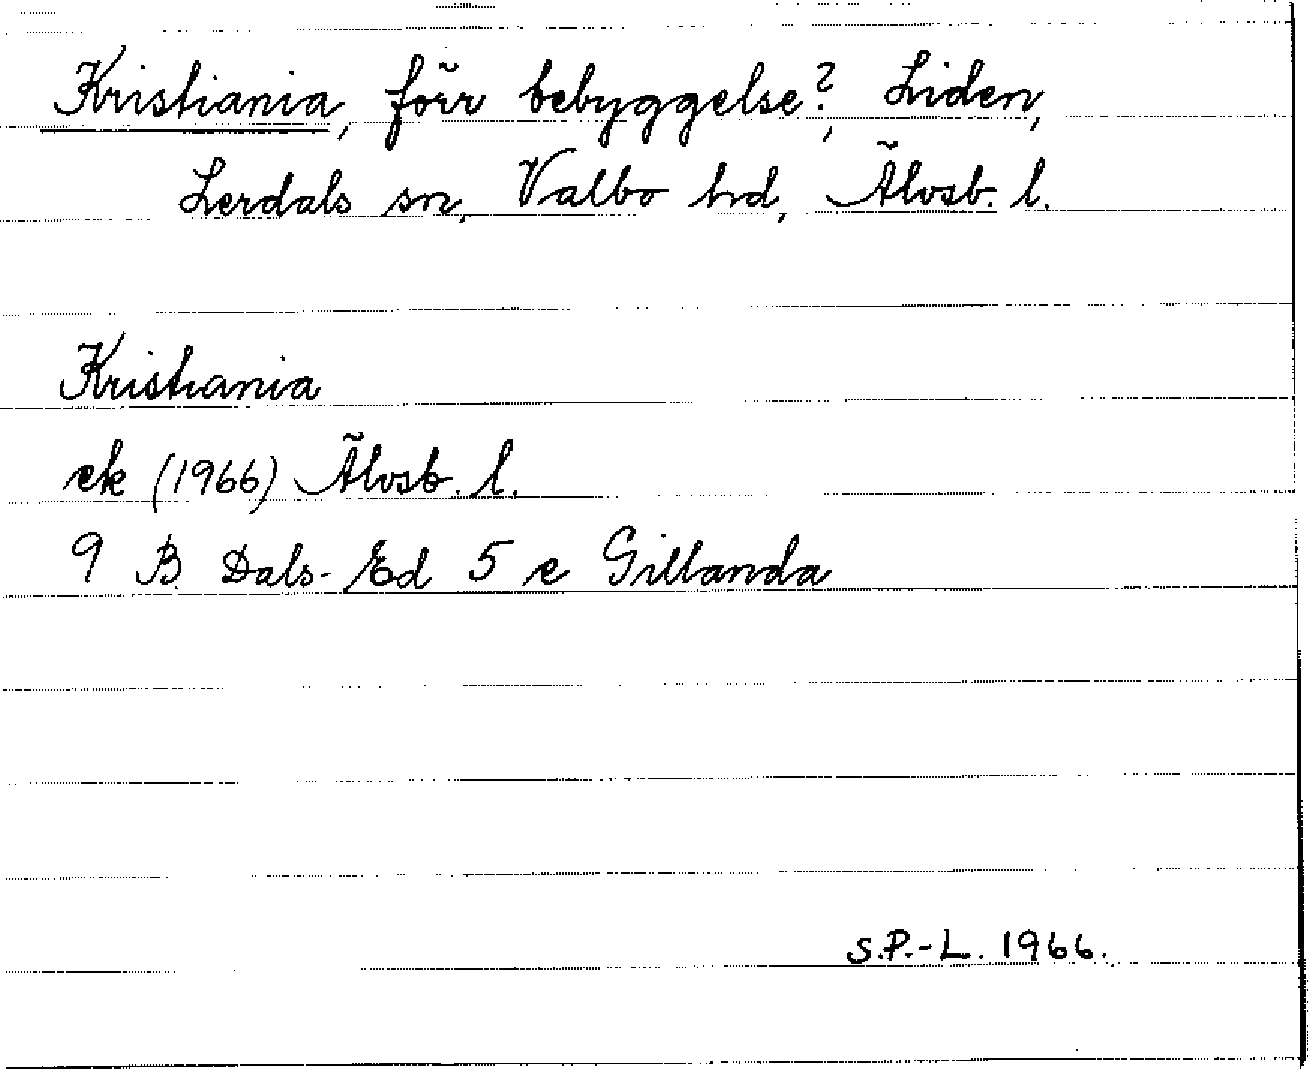 Kristiania, förr bebyggelse?, Liden,
Lerdals sn, Valbo hd, Älvsb. l.
Kristiania
ek (1966) Älvsb. l.
9 B Dals-Ed 5 e Gillanda
S.P.-L. 1966.